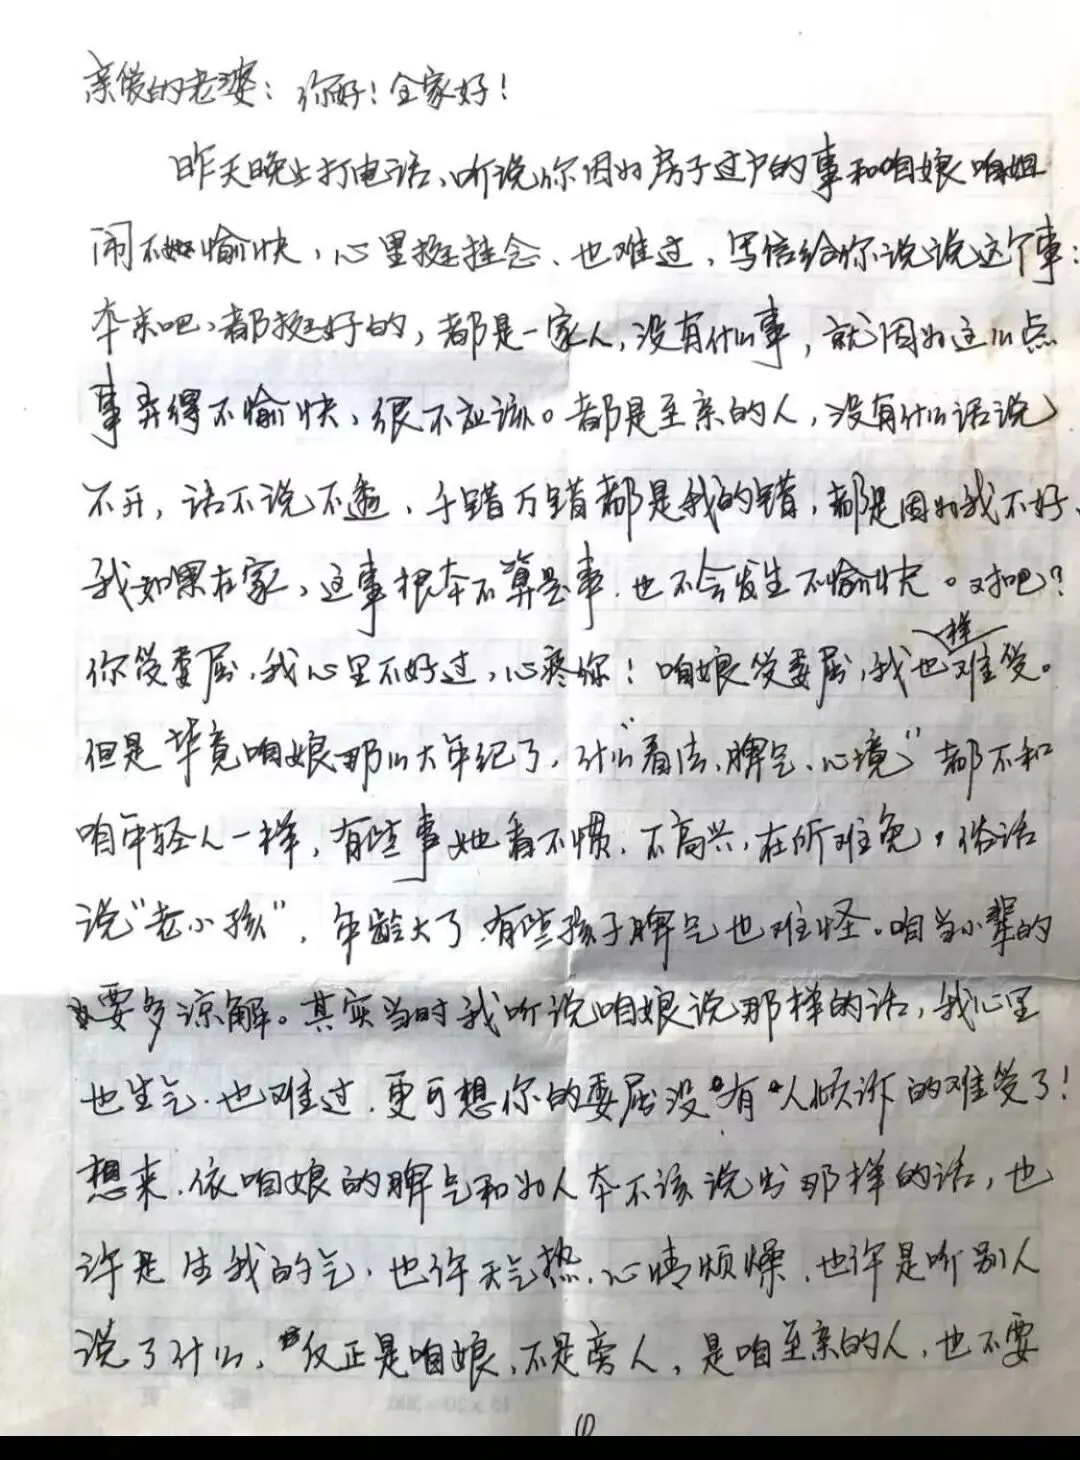 亲爱的老婆：你好！全家好！
昨天晚上打电话、听说你因为房子过户的事和咱娘咱姐
闹不愉快，心里挺挂念、也难过，写信给你说说这个事：
本来吧、都挺好的，都是一家人，没有什么事，就因为这么点
事弄得不愉快，很不应该。都是至亲的人，没有什么话说
不开，话不说不透，千错万错都是我的错，都是因为我不好、
我如果在家，这事根本不算是事，也不会发生不愉快。对吧？
你受委屈，我心里不好过，心疼你！咱娘受委屈，我也一样难受。
但是毕竟咱娘那么大年纪了，什么“看法、脾气、心境”都不和
咱年轻人一样，有些事她看不惯，不高兴，在所难免，俗话
说“老小孩”，年龄大了，有些孩子脾气也难怪。咱当小辈的
要多谅解。其实当时我听说咱娘说那样的话，我心里
也生气，也难过，更可想你的委屈没有人倾诉的难受了！
想来，依咱娘的脾气和为人本不该说出那样的话，也
许是生我的气，也许天气热，心情烦燥，也许是听别人
说了什么，反正是咱娘，不是旁人，是咱至亲的人，也不要